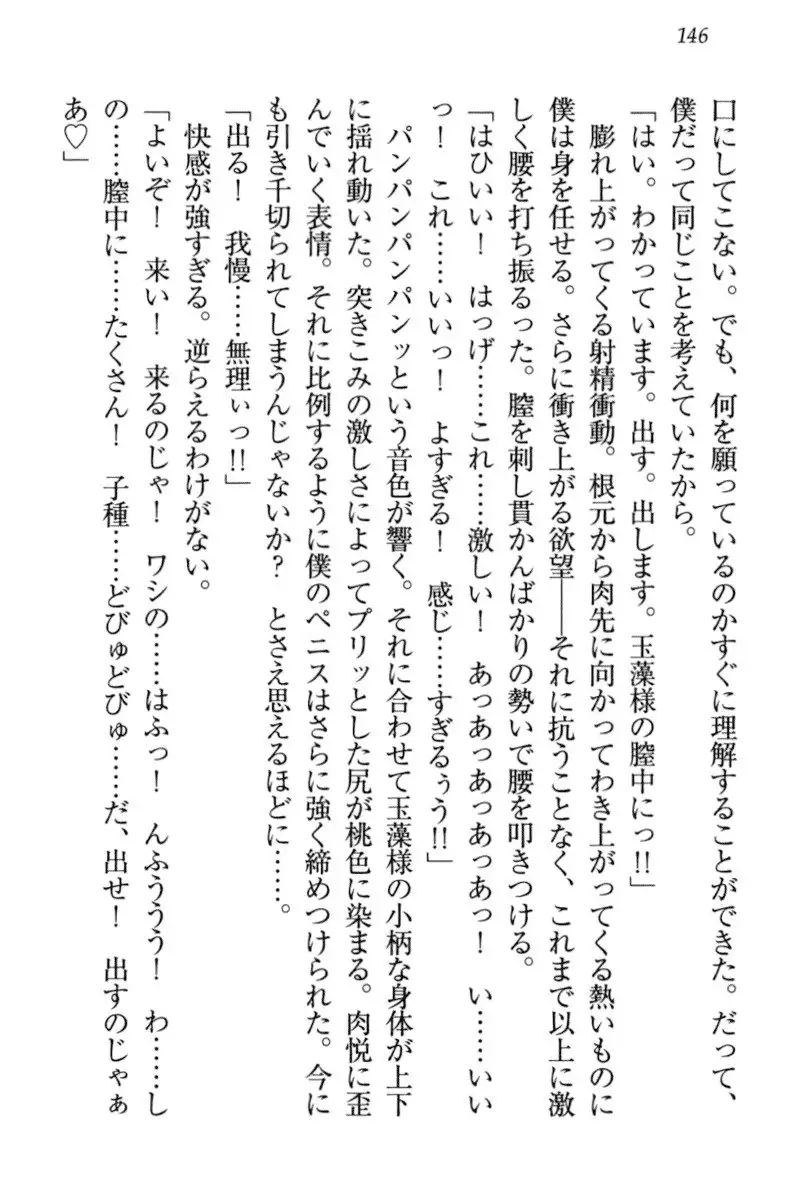 146
口にしてこない。でも、何を願っているのかすぐに理解することができた。だって、
僕だって同じことを考えていたから。
「はい。わかっています。出す。出します。玉藻様の膣中にっ!!」
膨れ上がってくる射精衝動。根元から肉先に向かってわき上がってくる熱いものに
僕は身を任せる。さらに衝き上がる欲望――それに抗うことなく、これまで以上に激
しく腰を打ち振るった。膣を刺し貫かんばかりの勢いで腰を叩きつける。
「はひいい！　はっげ……これ……激しい！　あっあっあっあっあっ！　い……いい
っ！　これ……いいっ！　よすぎる！　感じ……すぎるぅう!!」
パンパンパンパンッという音色が響く。それに合わせて玉藻様の小柄な身体が上下
に揺れ動いた。突きこみの激しさによってプリッとした尻が桃色に染まる。肉悦に歪
んでいく表情。それに比例するように僕のペニスはさらに強く締めつけられた。今に
も引き千切られてしまうんじゃないか？　とさえ思えるほどに……。
「出る！　我慢……無理ぃっ!!」
快感が強すぎる。逆らえるわけがない。
「よいぞ！　来い！　来るのじゃ！　ワシの……はふっ！　んふううう！　わ……し
の……膣中に……たくさん！　子種……どびゅどびゅ……だ、出せ！　出すのじゃぁ
あ♡」